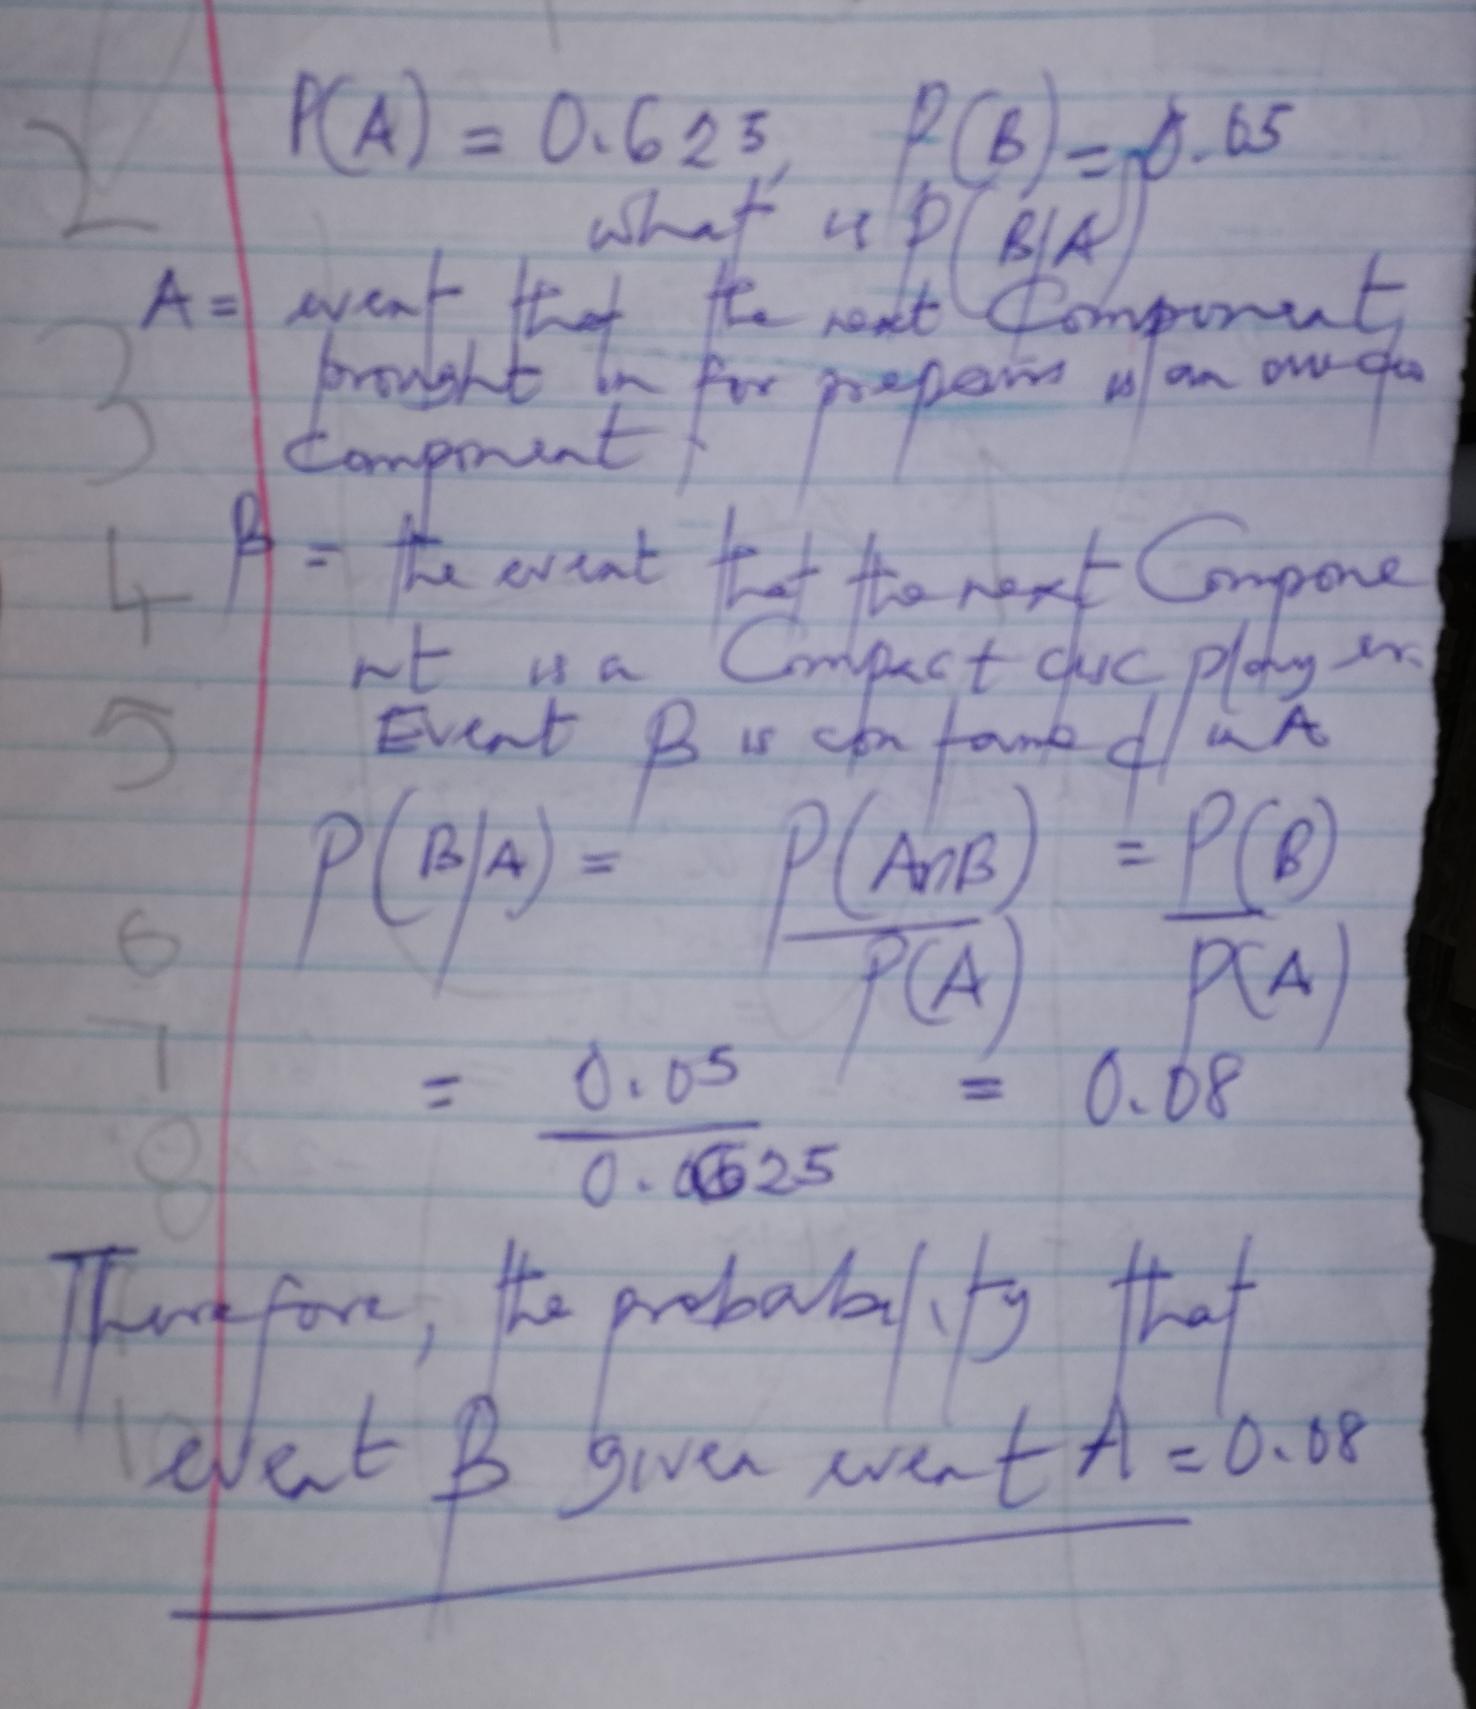 P(A) = 0.625, P(B) = 0.05
what is P(B/A)
A = event that the next Component
brought in for prepairs is an
component.
B = the event that the next Compone
nt is a Compact disc player.
Event B is contained in A
P(B/A) = P(A∩B) / P(A) = P(B) / P(A)
= 0.05 / 0.0625 = 0.08
Therefore, the probability that
event B given event A = 0.08
2
3
4
5
6
7
8